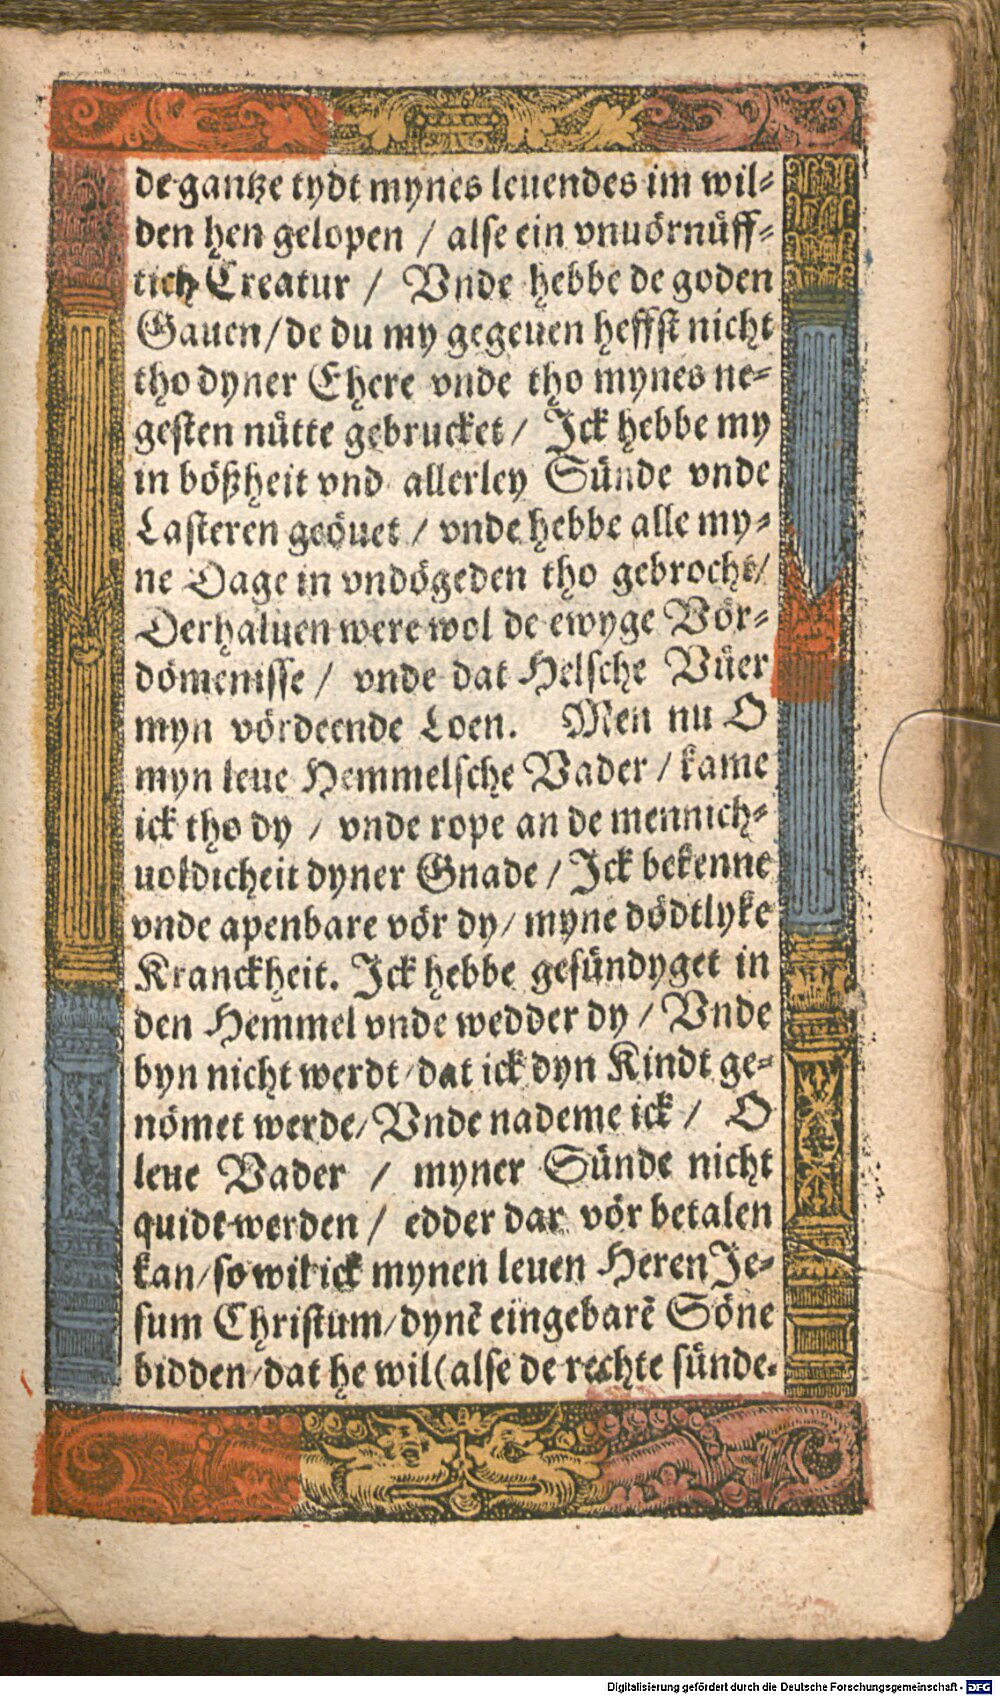 de gantze tydt mynes leuendes im wil⸗
den hen gelopen / alse ein vnuörnüff⸗
tich Creatur / Vnde hebbe de goden
Gauen / de du my gegeuen heffst nicht
tho dyner Ehere vnde tho mynes ne⸗
gesten nütte gebrucket / Jck hebbe my
in bößheit vnd allerley Sünde vnde
Lasteren geöuet / vnde hebbe alle my⸗
ne Dage in vndögeden tho gebrocht /
Derhaluen were wol de ewyge Vör⸗
dömenisse / vnde dat Helsche Vüer
myn vördeende Loen. Men nu O
myn leue Hemmelsche Vader / kame
ick tho dy / vnde rope an de mennich⸗
uoldicheit dyner Gnade / Jck bekenne
vnde apenbare vör dy / myne dödtlyke
Kranckheit. Jck hebbe gesündyget in
den Hemmel vnde wedder dy / Vnde
byn nicht werdt / dat ick dyn Kindt ge⸗
nömet werde / Vnde nademe ick / O
leue Vader / myner Sünde nicht
quidt werden / edder dar vör betalen
kan / so wil ick mynen leuen Heren Je⸗
sum Christum / dynē eingebarē Söne
bidden / dat he wil (alse de rechte sünde⸗
Digitalisierung gefördert durch die Deutsche Forschungsgemeinschaft - DFG